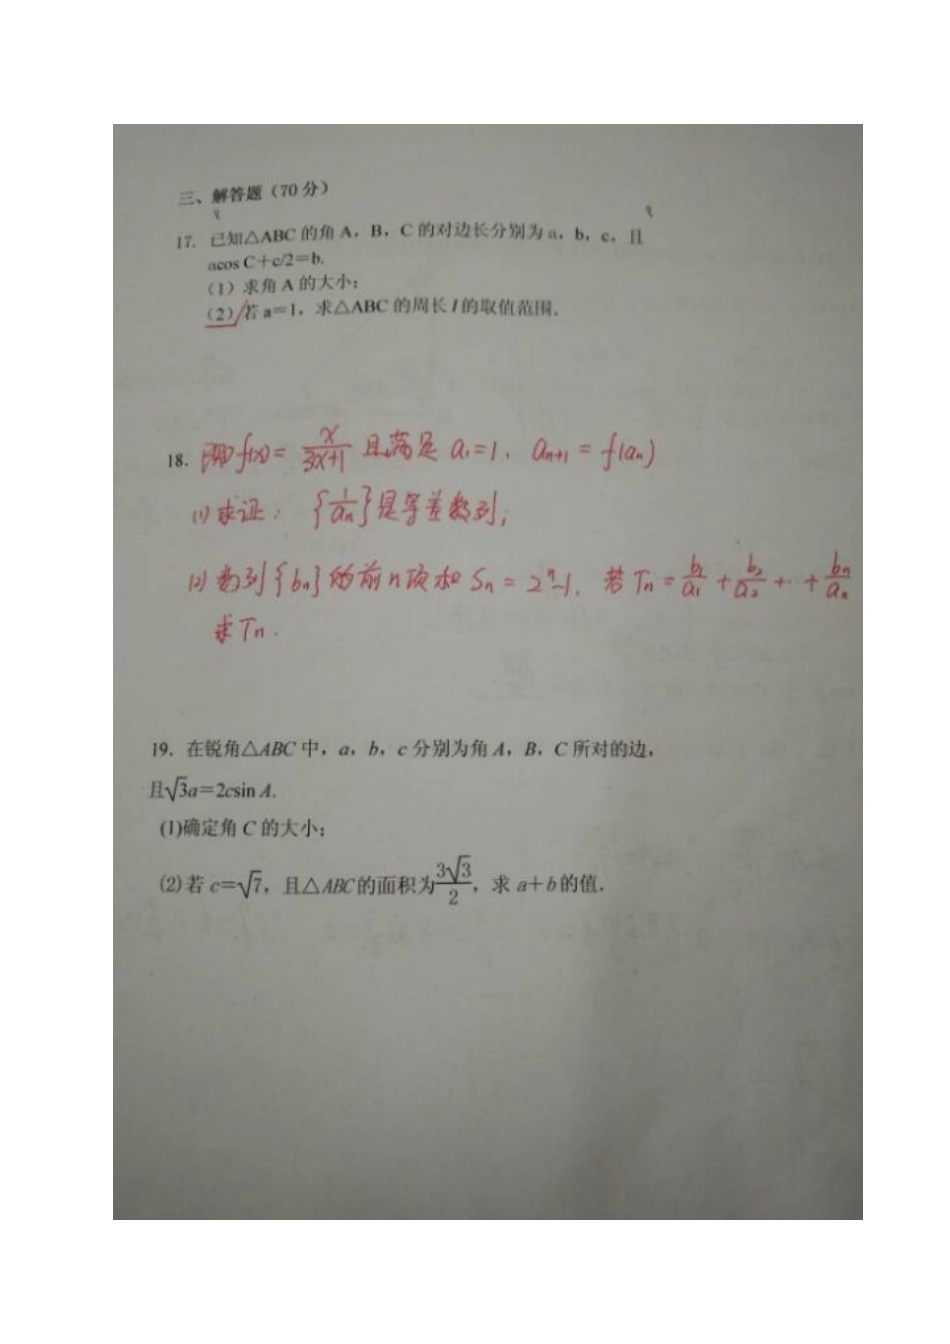 三、解答题（70 分）
17. 已知△ABC 的角 A，B，C 的对边长分别为 a，b，c，且
acos C＋c/2＝b.
（1）求角 A 的大小；
（2）若 a＝1，求△ABC 的周长 l 的取值范围.
18. f(x)= x/(3x+1) 且满足 a₁=1, aₙ₊₁ = f(aₙ)
(1) 求证：{1/aₙ}是等差数列;
(2) 数列{bₙ}的前n项和 Sₙ = 2ⁿ-1, 若 Tₙ = b₁/a₁ + b₂/a₂ + … + bₙ/aₙ
求Tₙ.
19. 在锐角△ABC 中，a，b，c 分别为角 A，B，C 所对的边，
且√3a＝2csin A.
(1)确定角 C 的大小；
(2)若 c＝√7，且△ABC的面积为3√3/2，求 a＋b的值.